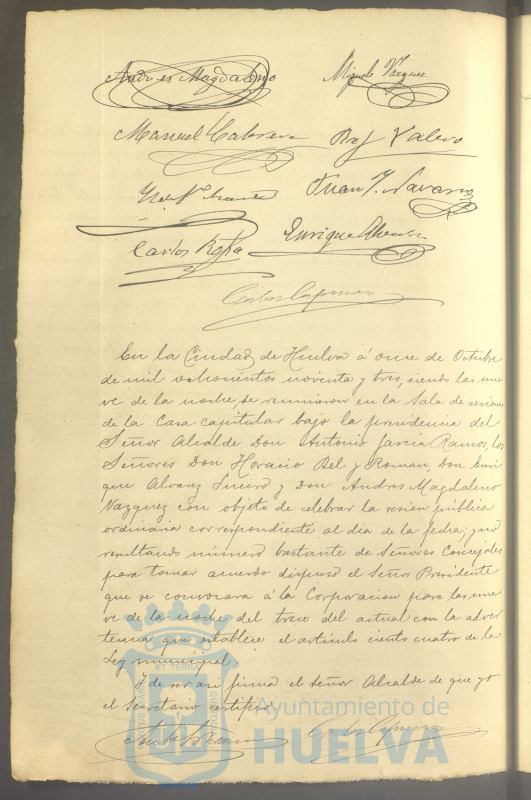 Andres Magdaleno Miguel Vazquez
Manuel Cabrera Raf Valero
Juan J. Navarro
Carlos Enrique Alvarez
Carlos
En la Ciudad de Huelva á once de Octubre
de mil ochocientos noventa y tres, siendo las nue
ve de la noche, se reunieron en la Sala de sesiones
de la Casa capitular bajo la presidencia del
Señor Alcalde Don Antonio Garcia Ramos, los
Señores Don Horacio Bel y Roman, Don Enri
que Alvarez y Don Andres Magdaleno
Vazquez con objeto de celebrar la sesion pública
ordinaria correspondiente al dia de la fecha; y no
resultando número bastante de Señores Concejales
para tomar acuerdo dispuso el Señor Presidente
que se convocara á la Corporacion para las nue
ve de la noche del trece del actual con la adver
tencia que establece el artículo ciento cuatro de la
Ley municipal.
Y de ser asi firma el Señor Alcalde de que yo
el Secretario certifico.
Ayuntamiento de
HUELVA